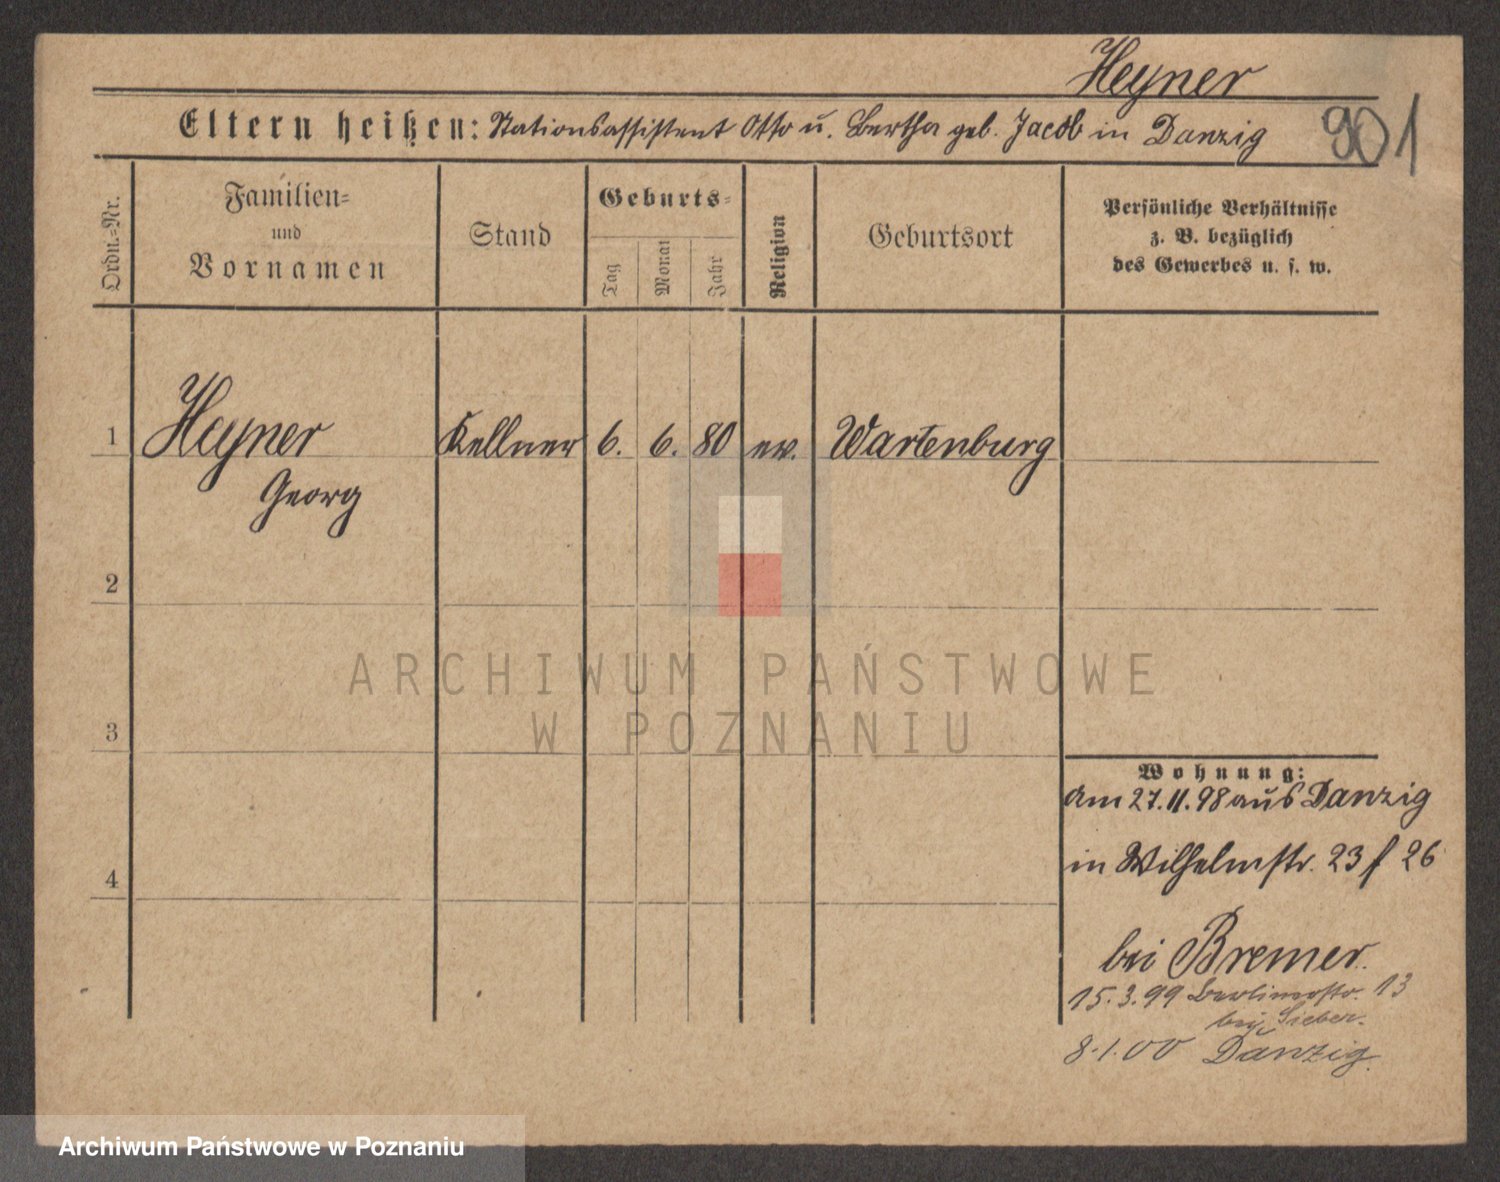 Heyner
Eltern heißen: Stationsassistent Otto u. Bertha geb. Jacob in Danzig
901
Ordn.=Nr.
Familien=
und
Vornamen
Stand
Geburts=
Tag
Monat
Jahr
Religion
Geburtsort
Persönliche Verhältnisse
z. B. bezüglich
des Gewerbes u. s. w.
1 Heyner Kellner 6. 6. 80 ev. Wartenburg
Georg
2
3
4
ARCHIWUM PAŃSTWOWE
W POZNANIU
Wohnung:
Am 27.11.98 aus Danzig
in Wilhelmstr. 23 f 26
bei Bremer.
15.3.99 Berlinerstr. 13
bei Sieber.
8.1.00 Danzig.
Archiwum Państwowe w Poznaniu